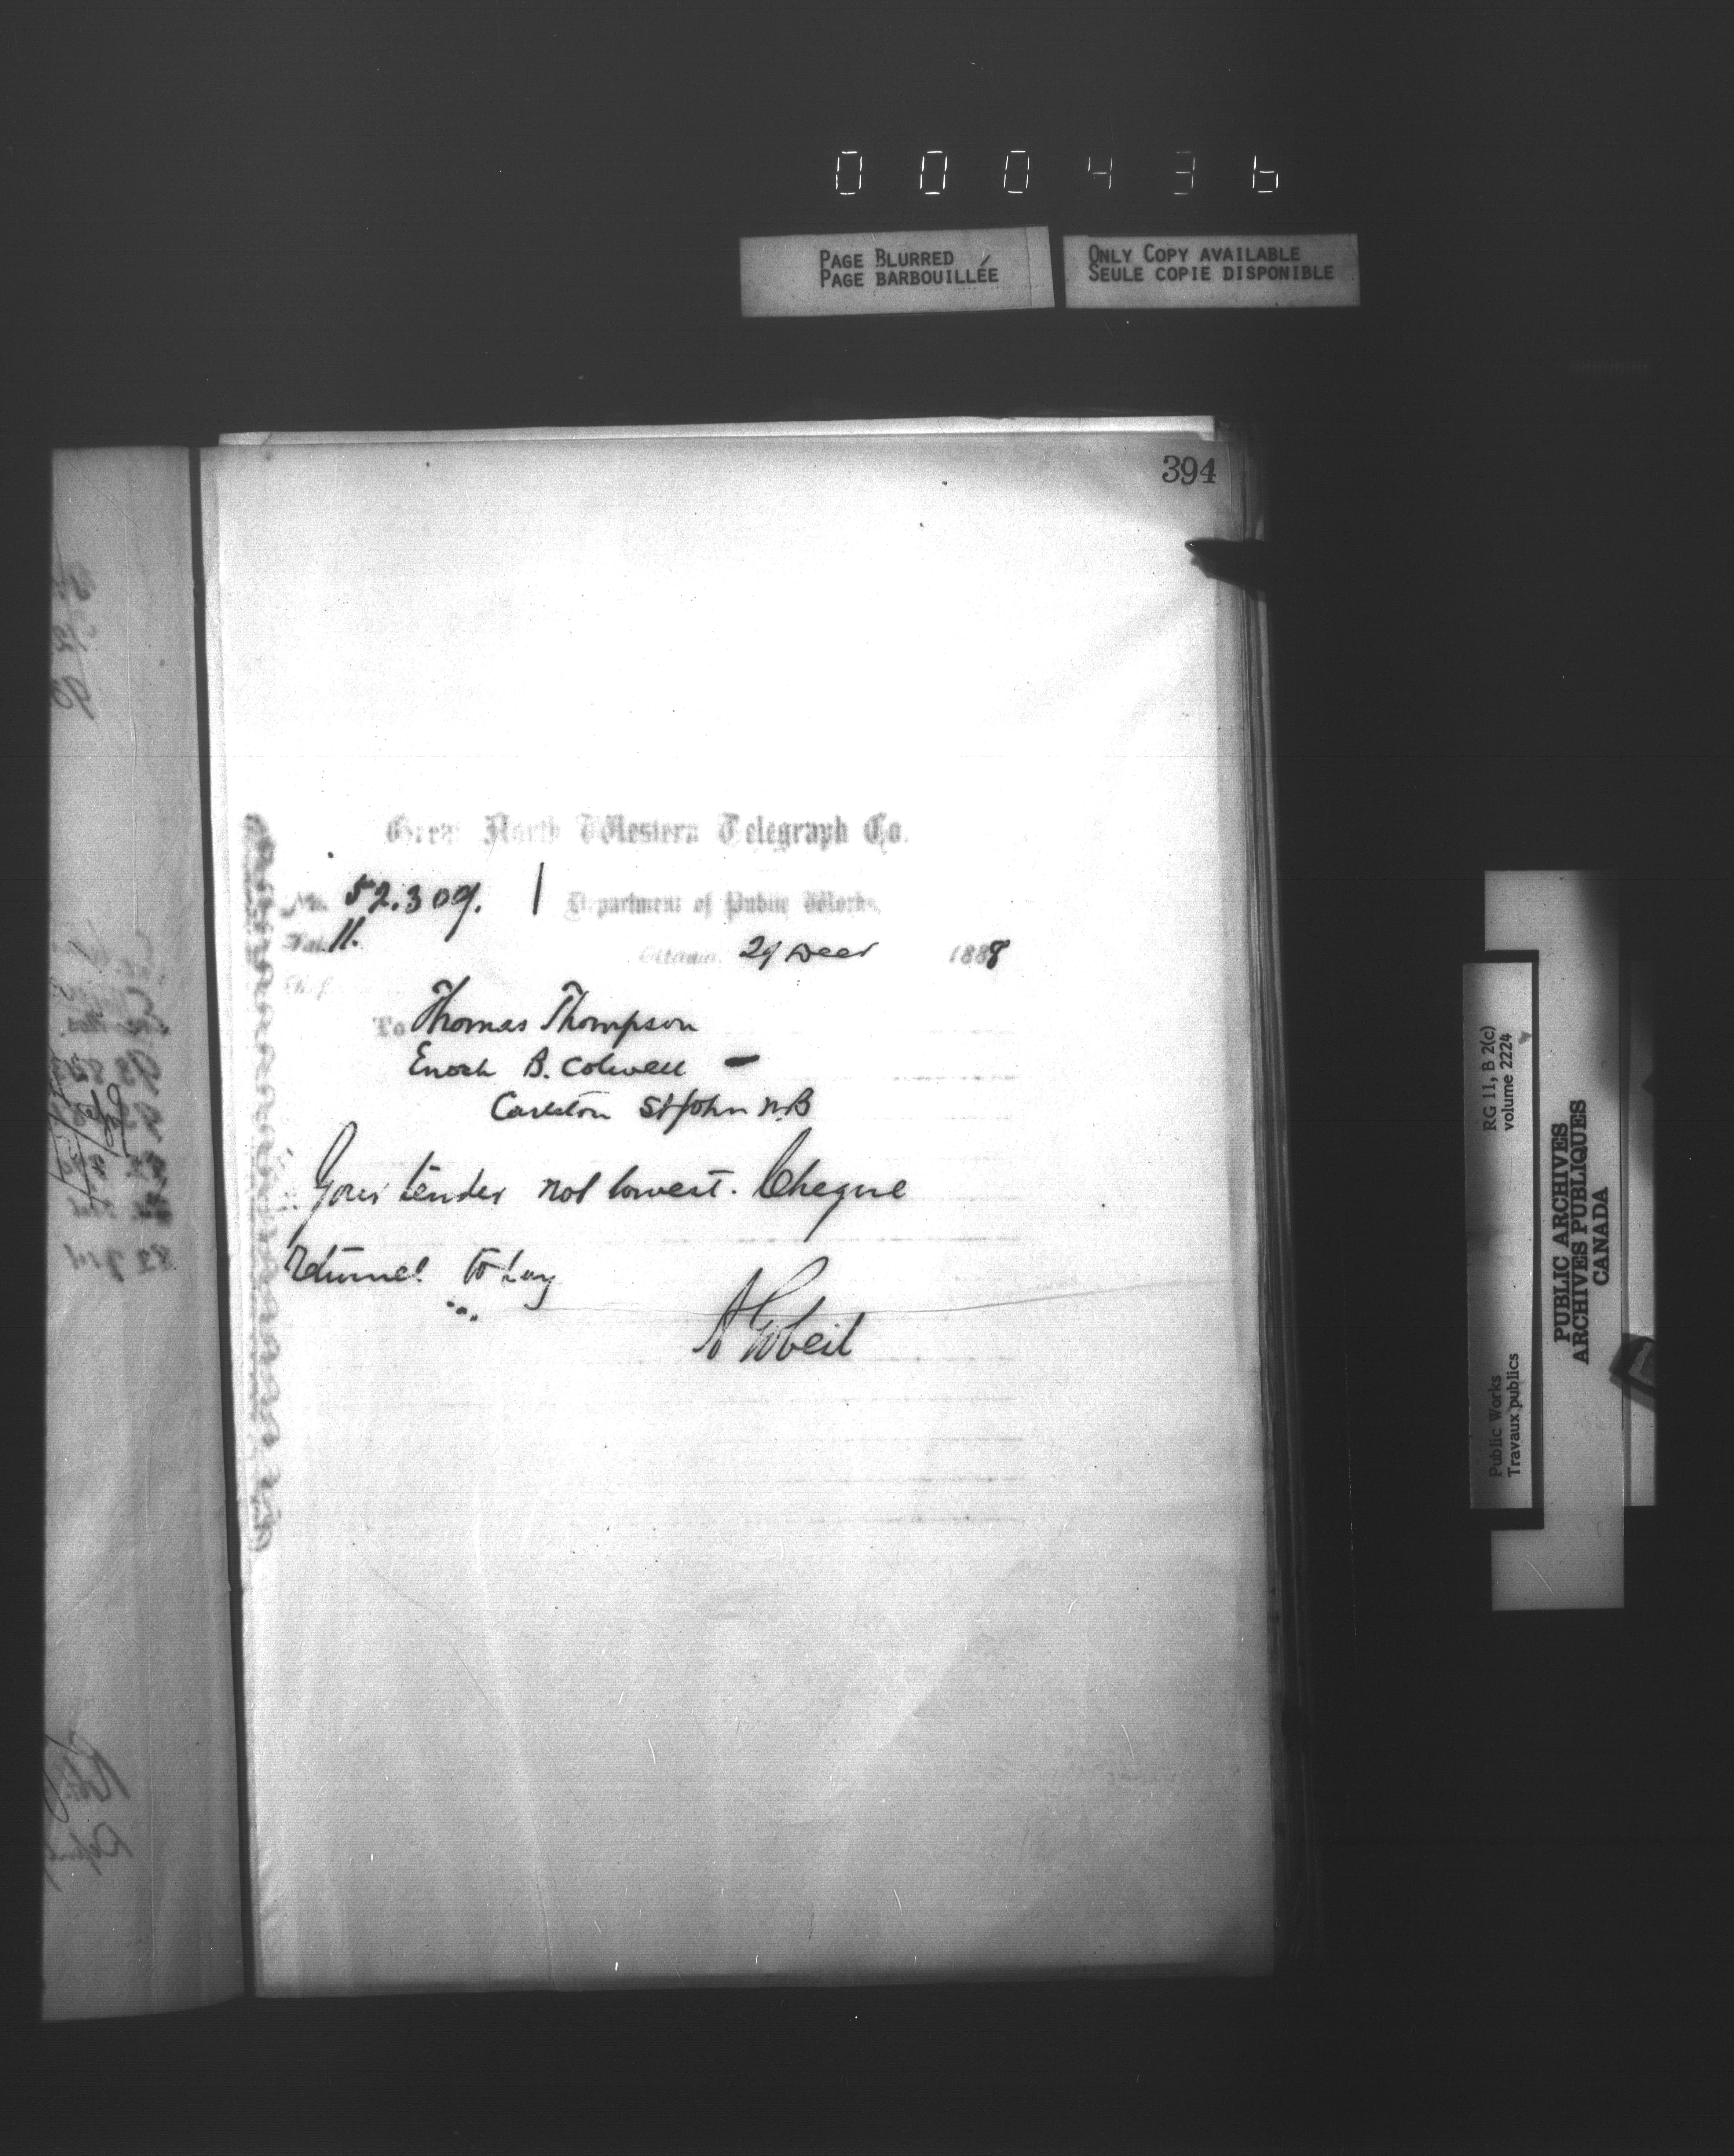 000436
PAGE BLURRED
PAGE BARBOUILLÉE
ONLY COPY AVAILABLE
SEULE COPIE DISPONIBLE
394
Great North Western Telegraph Co.
No. 52.309. Department of Public Works,
11.
Ottawa, 29 Decr 1888
To Thomas Thompson
Enoch B. Colwell -
Carleton St John N.B
Your tender not lowest. Cheque
returned to day
A Gobeil
RG 11, B 2(c)
volume 2224
Public Works
Travaux publics
PUBLIC ARCHIVES
ARCHIVES PUBLIQUES
CANADA